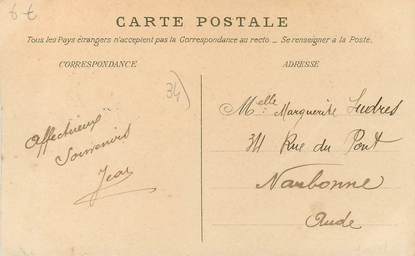 6 €
CARTE POSTALE
Tous les Pays étrangers n'acceptent pas la Correspondance au recto _ Se renseigner à la Poste.
CORRESPONDANCE
ADRESSE
34
Affectueux
Souvenirs
Jean
Melle Marguerite
34 Rue du Pont
Narbonne
Aude